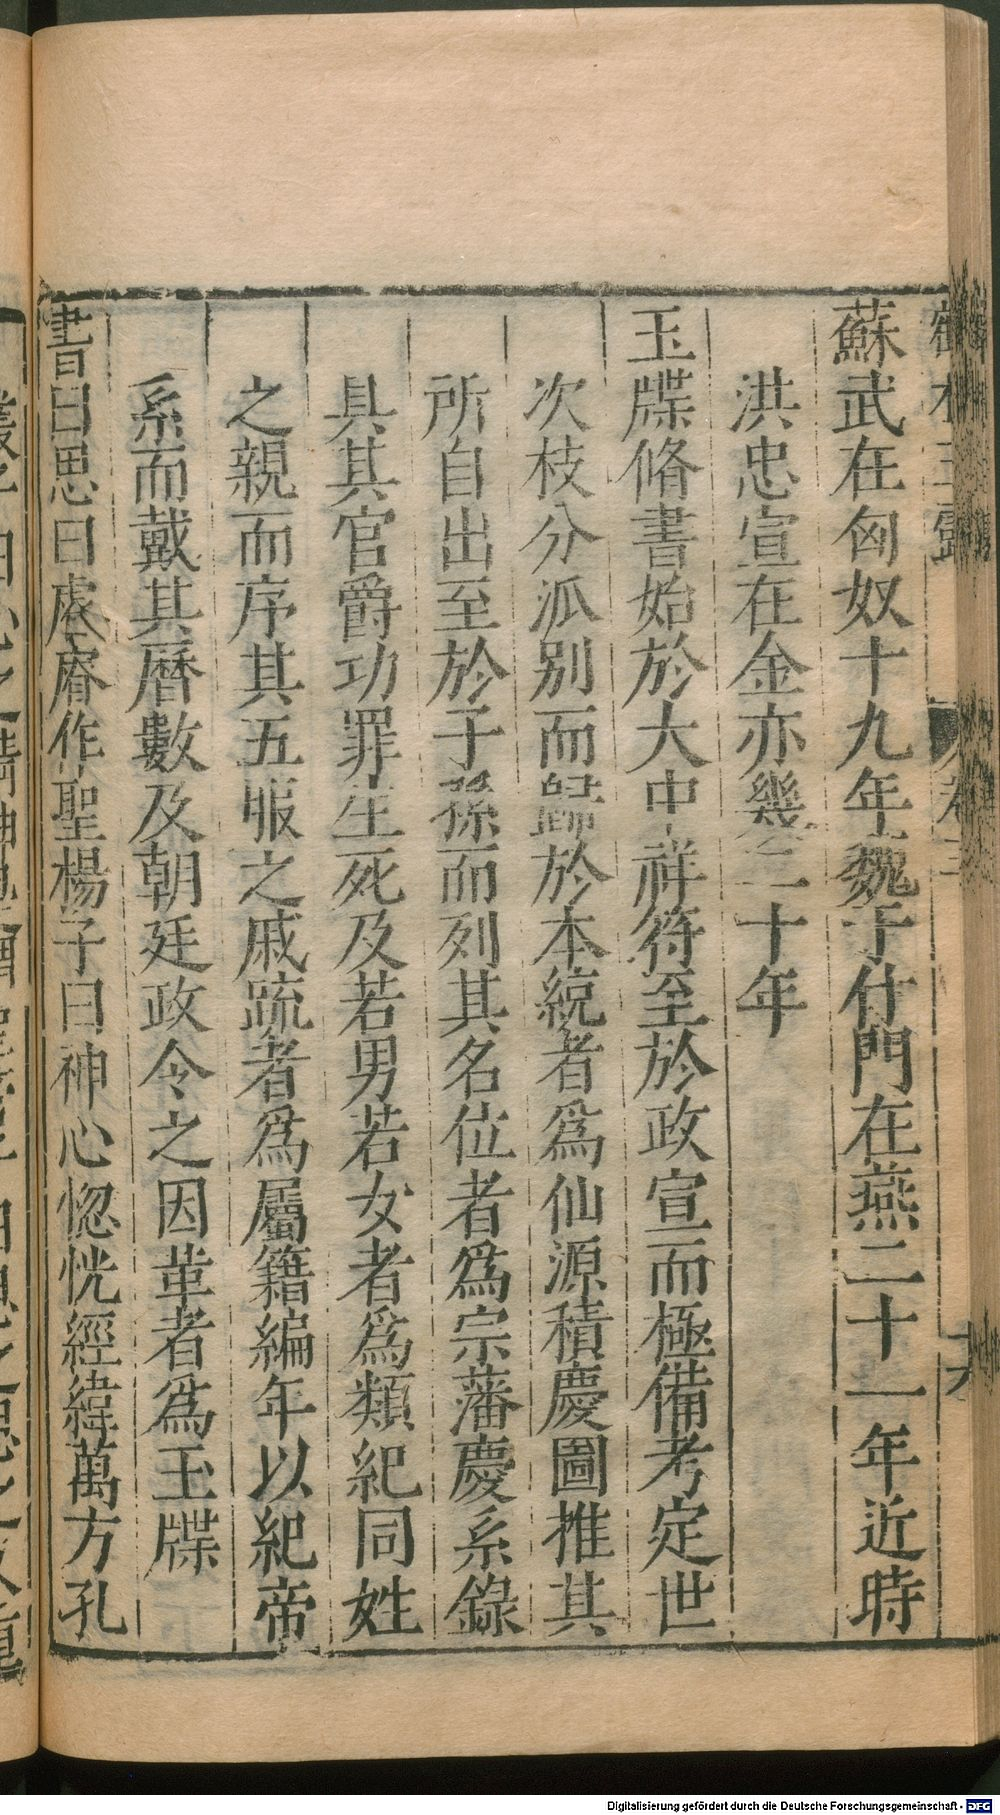 蘇武在匈奴十九年魏于什門在燕二十一年近時
洪忠宣在金亦幾二十年
玉牒脩書始於大中祥符至於政宣而極備考定世
次枝分派別而歸於本統者爲仙源積慶圖推其
所自出至於子孫而列其名位者爲宗藩慶系錄
具其官爵功罪生死及若男若女者爲類紀同姓
之親而序其五服之戚疏者爲屬籍編年以紀帝
系而戴其曆數及朝廷政令之因革者爲玉牒
書曰思曰處睿作聖楊子曰神心惚恍經緯萬方孔
Digitalisierung gefördert durch die Deutsche Forschungsgemeinschaft - DFG